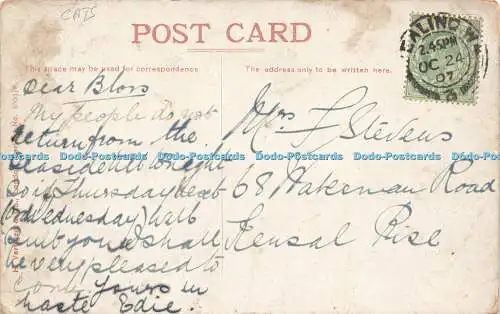 CATS
POST CARD
This space may be used for correspondence.
The address only to be written here.
EALING. W
2.45PM
OC 24
07
Dear Bloss
My people do not
return from the
seaside to night
but Thursday next
(od Wednesday) will
suit you & shall
be very pleased to
come yours in
haste Edie.
Mrs F Stevens
68 Wakeman Road
Kensal Rise
Dodo-Postcards Dodo-Postcards Dodo-Postcards Dodo-Postcards